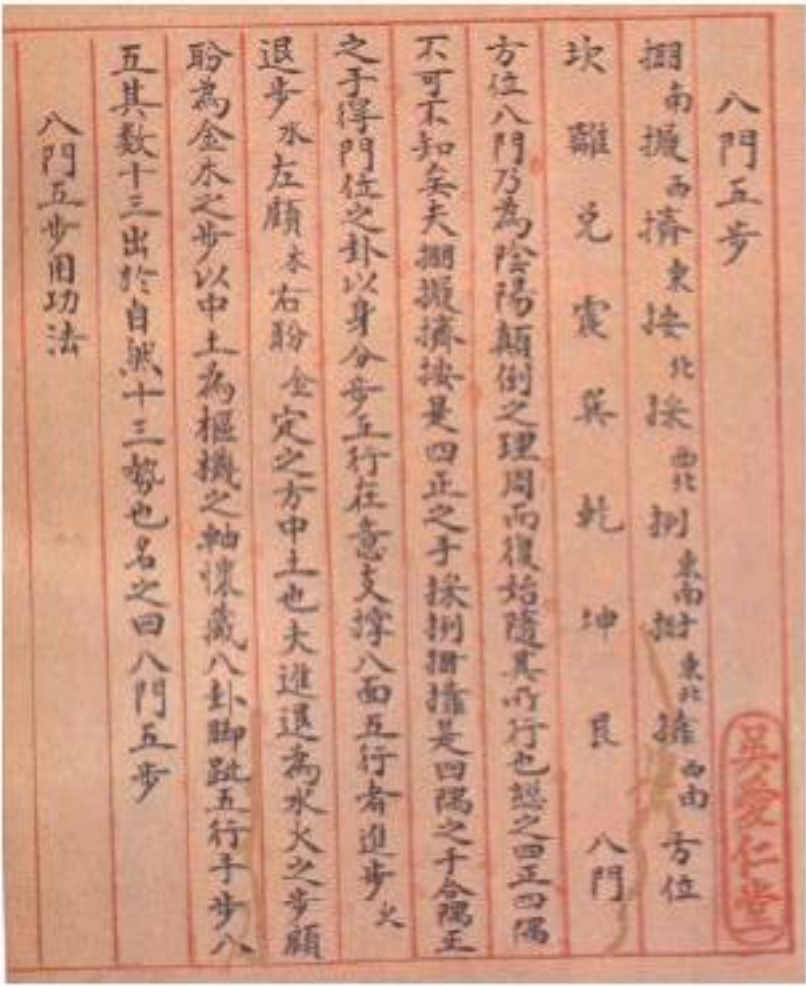 八門五步
掤南 攦西 擠東 按北 採西北 挒東南 掛東北 擓西南 方位
坎 離 兌 震 巽 乾 坤 艮 八門
方位八門乃為陰陽顛倒之理周而復始隨其所行也總之四正四隅
不可不知矣夫掤攦擠按是四正之手採挒掛擓是四隅之手合隅正
之手得門位之卦以身分步五行在意支撐八面五行者進步火
退步水左顧木右盼金定之方中土也夫進退為水火之步顧
盼為金木之步以中土為樞機之軸懷藏八卦脚趾五行手步八
五其數十三出於自然十三勢也名之曰八門五步
八門五步用功法
吳愛仁堂